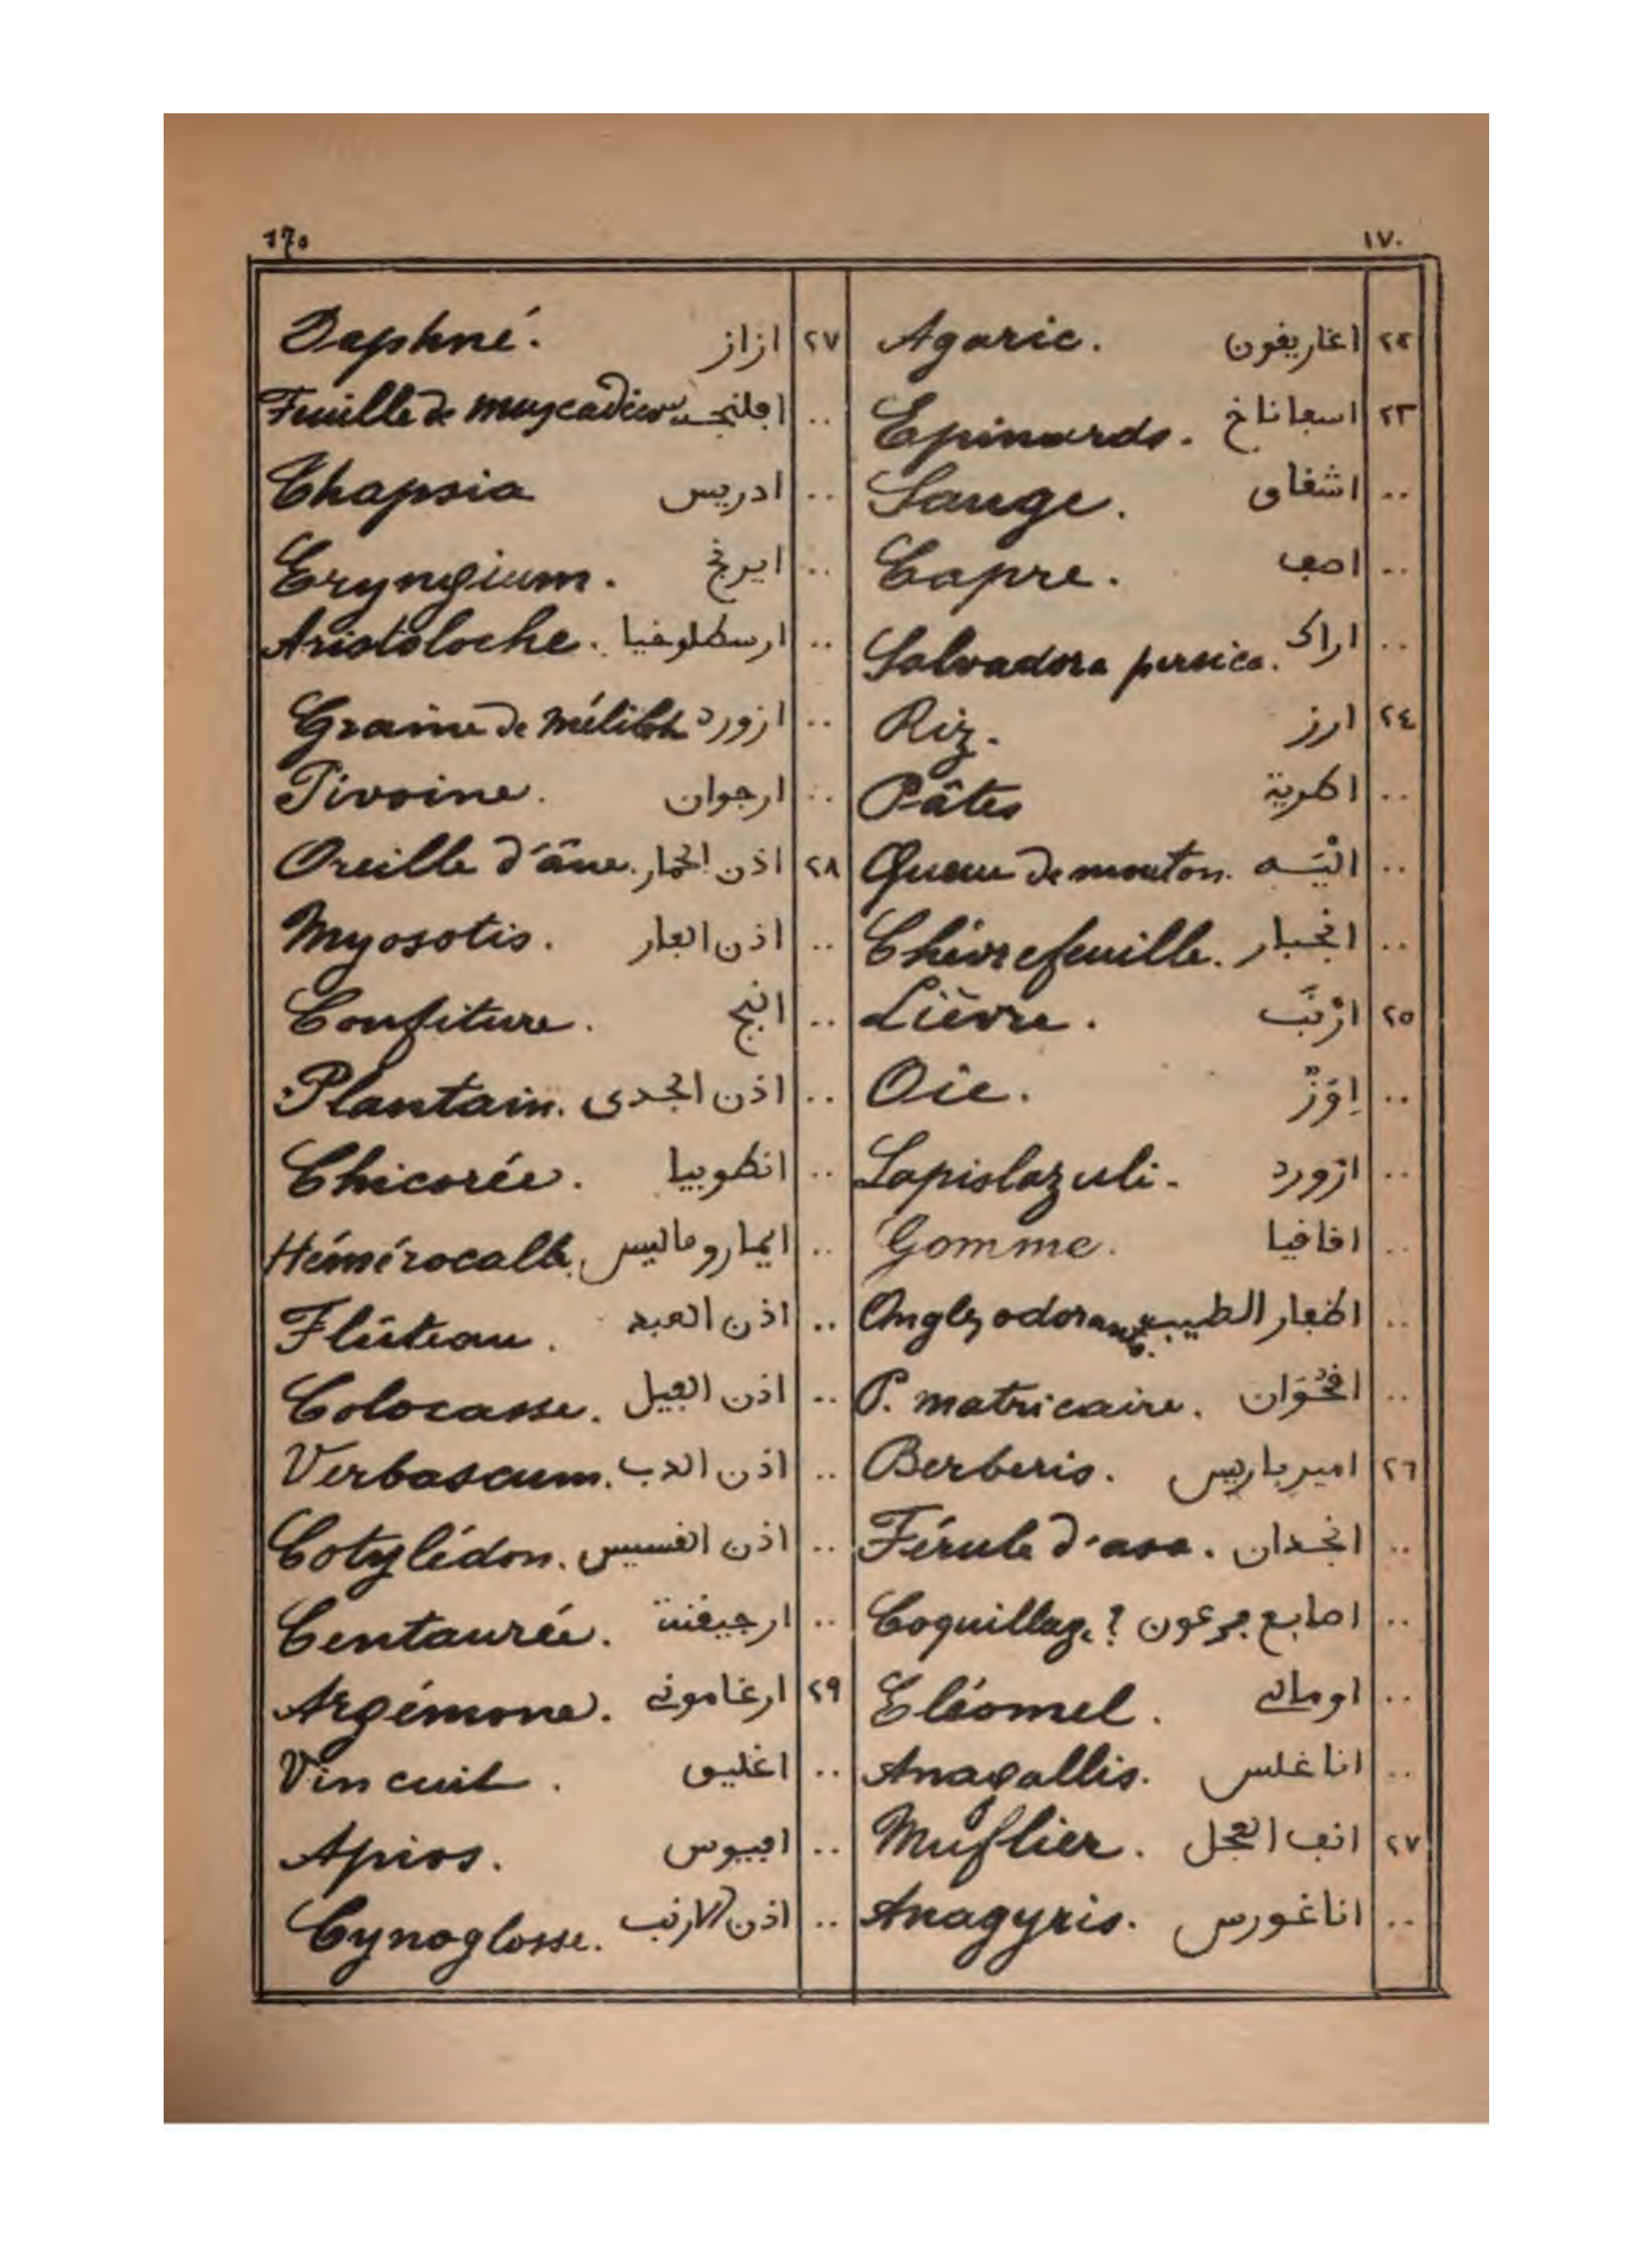 ١٧٠ 170
٢٢ اغاريفون Agaric.
٢٣ اسڢاناخ Epinards.
.. اشفاق Sauge.
.. اصڢ Capre.
.. اراك Salvadora persica.
٢٤ ارز Riz.
.. اطرية Pâtes
.. الْيَـه Queue de mouton.
.. انجبار Chèvrefeuille.
٢٥ ارْنَب Lièvre.
.. اِوَزْ Oie.
.. ازورد Lapislazuli.
.. افافيا Gomme.
.. اظڢار الطيب Ongles odorants.
.. افحُوَان P. matricaire.
٢٦ امير باريس Berberis.
.. انجدان Férule d'asa.
.. اصابع ڢرعون Coquillage?
.. اومالي Eléomel.
.. اناغلس Anagallis.
٢٧ انڢ العجل Muflier.
.. اناغورس Anagyris.
٢٧ ازاز Daphné.
.. Feuille de muscadier
.. ادريس Thapsia
.. ايرنج Eryngium.
.. ارسطلوخيا Aristoloche.
.. ازورد Graine de mélilot
.. ارجوان Pivoine.
٢٨ اذن الحمار Oreille d'âne.
.. اذن الڢار Myosotis.
.. انبج Confiture.
.. اذن الجدى Plantain.
.. انطوبيا Chicorée.
.. ايماروماليس Hémérocalle.
.. اذن العبد Flûteau.
.. اذن الڢيل Colocasse.
.. اذن الدب Verbascum.
.. اذن الفسيس Cotylédon.
.. ارجيفنة Centaurée.
٢٩ ارغاموني Argémone.
.. اغليق Vin cuit.
.. اڢيوس Apios.
.. اذن الارنب Cynoglosse.